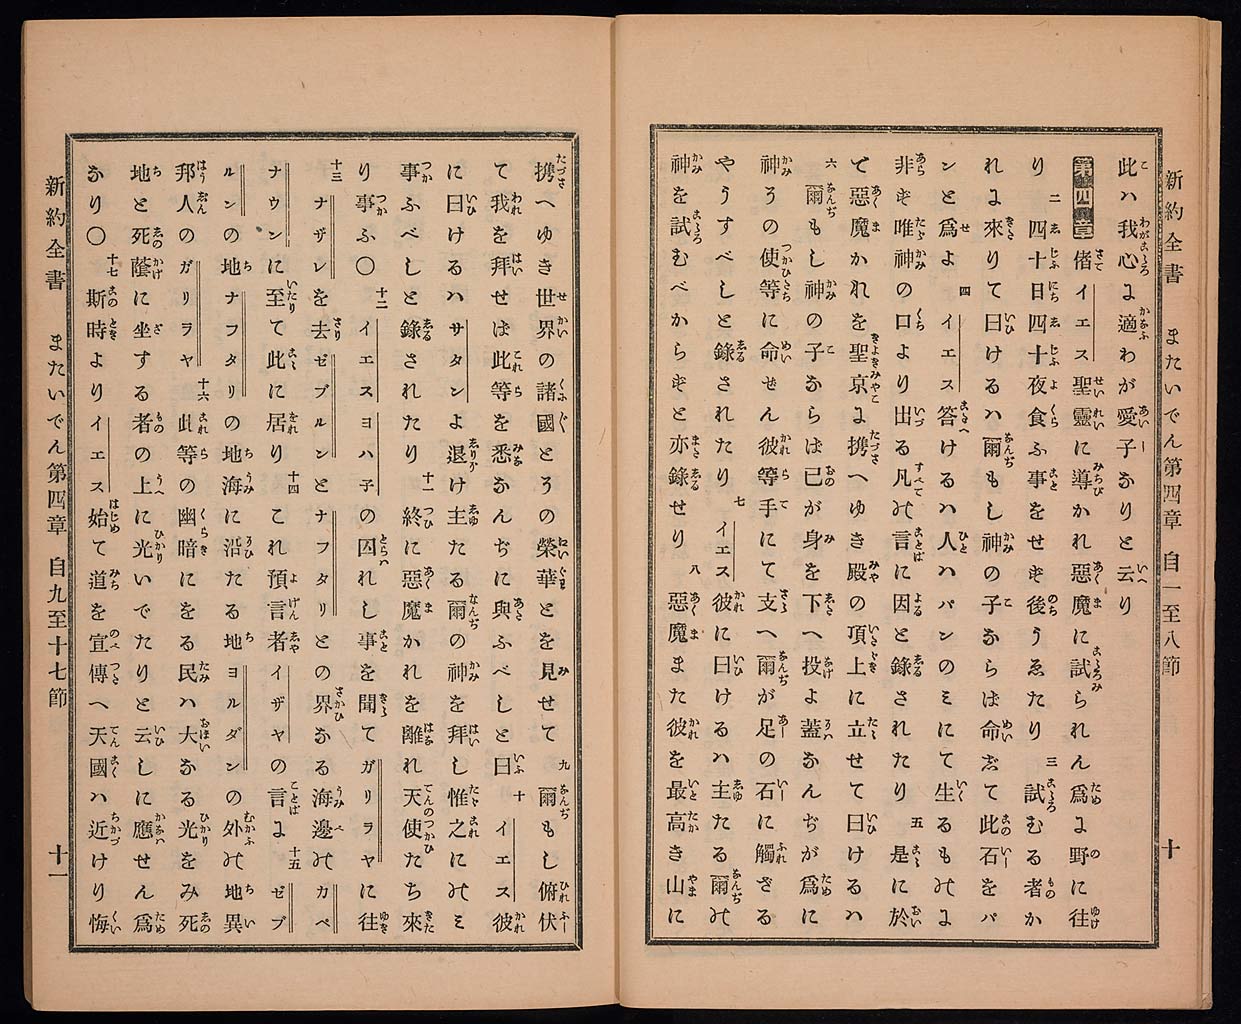 新約全書　またいでん第四章　自一至八節　十
此ハ我心よ適わが愛子なりと云り
第四章 偖イエス聖靈に導かれ惡魔に試られん爲よ野に往
り 二 四十日四十夜食ふ事をせず後うゑたり 三 試むる者か
れよ來りて曰けるハ爾もし神の子ならば命じて此石をパ
ンと爲よ 四 イエス答けるハ人ハパンのミにて生るものよ
非ず唯神の口より出る凡の言に因と錄されたり 五 是に於
て惡魔かれを聖京よ携へゆき殿の頂上に立せて曰けるハ
六 爾もし神の子ならば己が身を下へ投よ蓋なんぢが爲に
神その使等に命せん彼等手にて支へ爾が足の石に觸ざる
やうすべしと錄されたり 七 イエス彼に曰けるハ主たる爾の
神を試むべからずと亦錄せり 八 惡魔また彼を最高き山に
携へゆき世界の諸國とその榮華とを見せて 九 爾もし俯伏
て我を拜せば此等を悉なんぢに與ふべしと曰 十 イエス彼
に曰けるハサタンよ退け主たる爾の神を拜し惟之にのミ
事ふべしと錄されたり 十一 終に惡魔かれを離れ天使たち來
り事ふ〇 十二 イエスヨハ子の囚れし事を聞てガリラヤに往
十三 ナザレを去ゼブルンとナフタリとの界なる海邊のカペ
ナウンに至て此に居り 十四 これ預言者イザヤの言よ 十五 ゼブ
ルンの地ナフタリの地海に沿たる地ヨルダンの外の地異
邦人のガリラヤ 十六 此等の幽暗にをる民ハ大なる光をみ死
地と死蔭に坐する者の上に光いでたりと云しに應せん爲
なり〇 十七 斯時よりイエス始て道を宣傳へ天國ハ近けり悔
新約全書　またいでん第四章　自九至十七節　十一